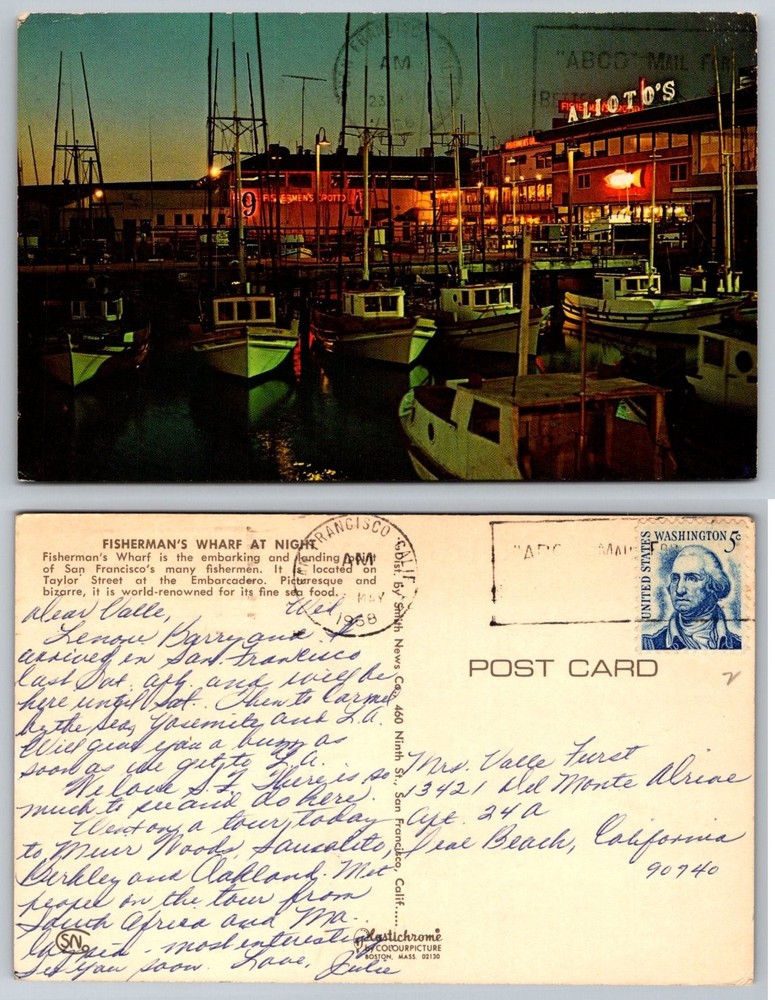 SAN FRANCISCO CALIF
AM
"ABCD" MAIL FOR
ALIOTO'S
FISHERMEN'S GROTTO
9
FISHERMAN'S WHARF AT NIGHT
Fisherman's Wharf is the embarking and landing point
of San Francisco's many fishermen. It is located on
Taylor Street at the Embarcadero. Picturesque and
bizarre, it is world-renowned for its fine sea food.
SAN FRANCISCO CALIF
AM
MAY
1968
"ABCD" MAIL FOR
UNITED STATES
WASHINGTON 5c
POST CARD
Dist. by Smith News Co., 460 Ninth St., San Francisco, Calif.....
Dear Valle, Wed.
Lenore Barry and I
arrived in San Francisco
last Sat. aft. and will be
here until Sat. Then to Carmel
by the sea, Yosemite and L.A.
Will give you a buzz as
soon as we get to L.A.
We love S.F. There is so
much to see and do here.
Went on a tour today
to Muir Woods, Sausalito,
Berkley and Oakland. Met
people on the tour from
South Africa and Ma-
- most interesting
See you soon. Love, Julie
Mrs. Valle Furst
13421 Del Monte Drive
Apt. 24A
Seal Beach, California
90740
SN
Plastichrome
BY COLOURPICTURE
BOSTON, MASS. 02130